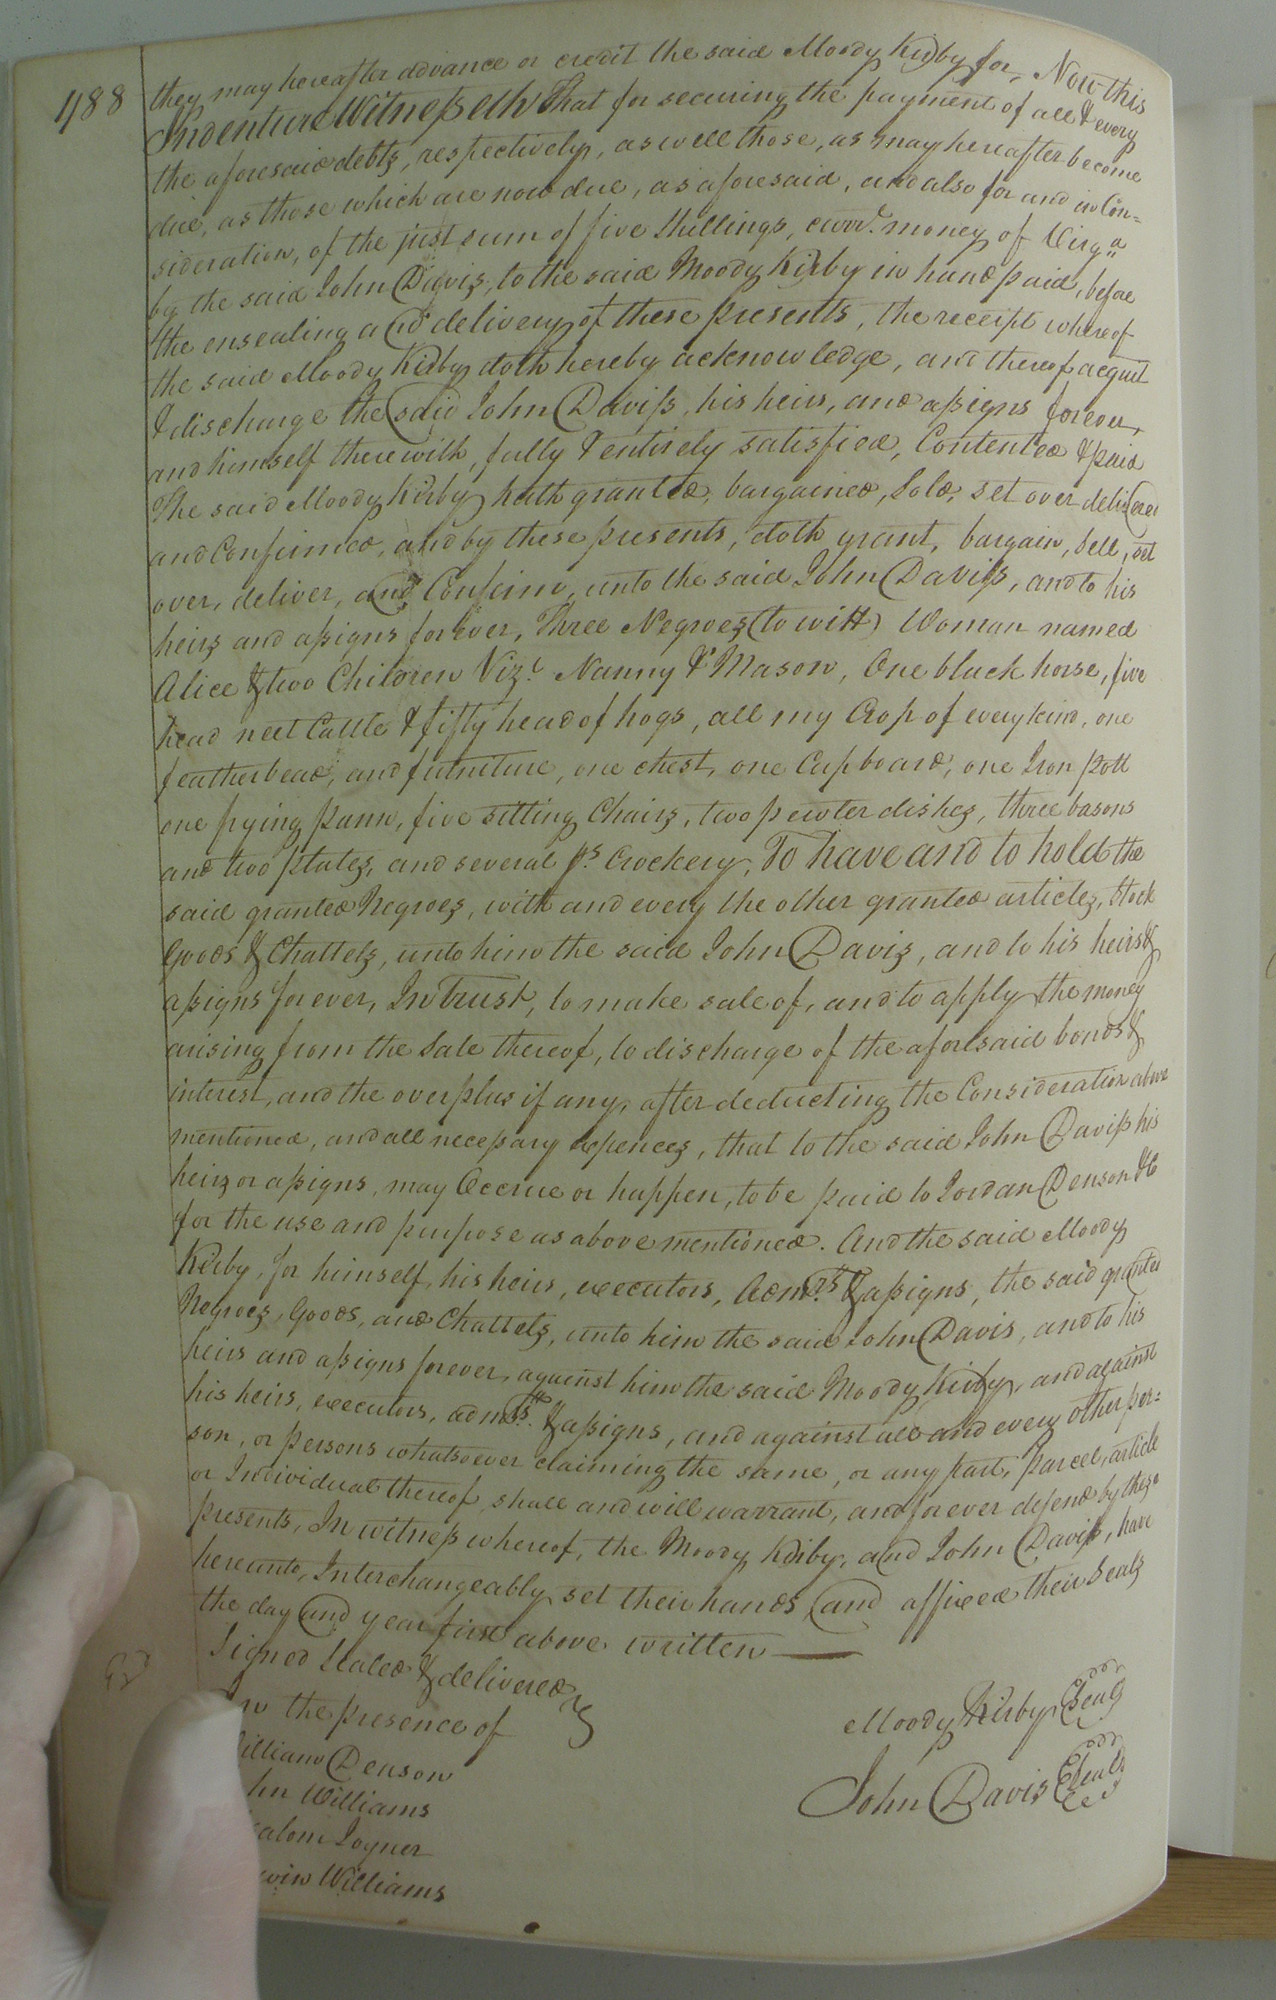 488
they may hereafter advance or credit the said Moody Kirby for, Now this
Indenture Witnesseth That for securing the payment of all & every
the aforesaid debts, respectively, as well those, as may hereafter become
due, as those which are now due, as aforesaid, and also for and in Con=
sideration, of the just sum of five Shillings, curr.t money of Virg.a
by the said John Davis, to the said Moody Kirby in hand paid, before
the ensealing and delivery of these presents, the receipt whereof
the said Moody Kirby doth hereby acknowledge, and thereof acquit
& discharge the said John Daviss, his heirs, and assigns forever,
and himself therewith, fully & entirely satisfied, Contented & paid
The said Moody Kirby hath granted, bargained, Sold, set over delivered
and Confirmed, and by these presents, doth grant, bargain, Sell, set
over, deliver, and Confirm, unto the said John Daviss, and to his
heirs and assigns forever, Three Negroes (to witt) Woman named
Alice & two Children Viz.t Nanny & Mason, One black horse, five
head neet Cattle & fifty head of hogs, all my Crop of every kind, one
featherbead, and furniture, one chest, one Cupboard, one Iron Pott
one frying pann, five sitting Chairs, two pewter dishes, three basons
and two plates, and several p.s Crockery, To have and to hold the
said granted Negroes, with and every the other granted articles, Stock
Goods & Chattels, unto him the said John Davis, and to his heirs &
assigns for ever, In Trust, to make sale of, and to apply the money
arising from the Sale thereof, to discharge of the aforesaid bonds &
interest, and the overplus if any, after deducting the Consideration above
mentioned, and all necessary expences, that to the said John Daviss his
heirs or assigns, may Accrue or happen, to be paid to Jordan Denson & C
for the use and purpose as above mentioned. And the said Moody
Kirby, for himself, his heirs, executors, Adm.rs & assigns, the said granted
Negroes, Goods, and Chattels, unto him the said John Davis, and to his
heirs and assigns forever, against him the said Moody Kirby, and against
his heirs, executors, adm.rs & assigns, and against all and every other per=
son, or persons whatsoever claiming the same, or any part, parcel, article
or Individual thereof, shall and will warrant, and forever defend by these
presents, In witness whereof, the Moody Kirby, and John Daviss, have
hereunto, Interchangeably set their hands, and affixed their Seals
the day and year first above written
Signed Sealed & delivered
the presence of
Denson
Williams
Joyner
Williams
Moody Kirby Seal
John Davis Seal